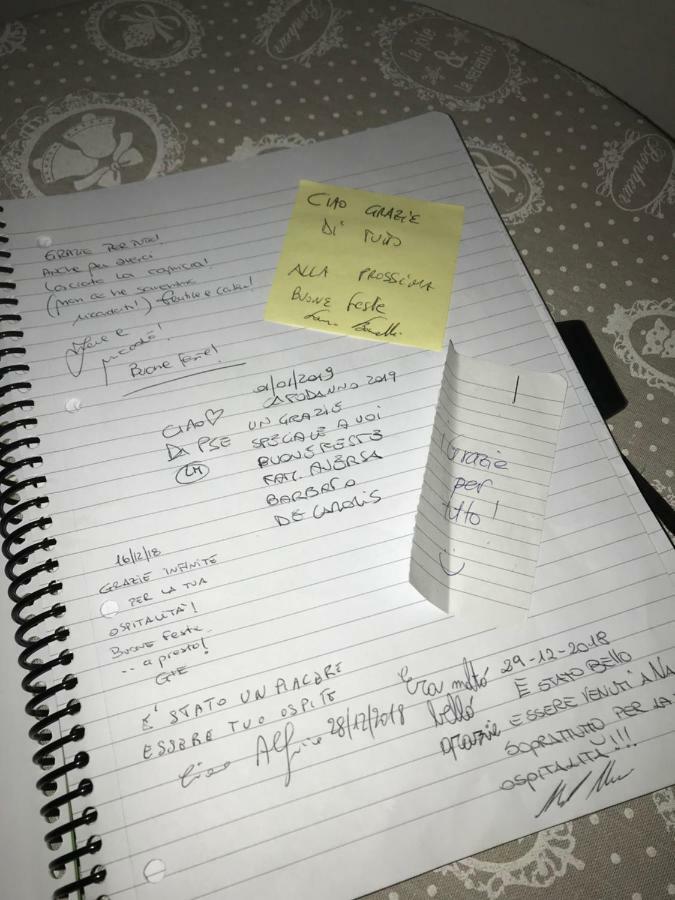 GRAZIE PER TUTTO!
Anche per averci
lasciato la
(non ce ne saremmo
!)
Buone Feste!
CIAO GRAZIE
DI TUTTO
ALLA PROSSIMA
BUONE FESTE
01/01/2019
CAPODANNO 2019
CIAO♡ UN GRAZIE
DA PSE SPECIALE A VOI
BUONE FESTE
FAM. AVERSA
BARBATO
DE CAROLIS
Grazie
per
tutto!
16/12/18
GRAZIE INFINITE
PER LA TUA
OSPITALITÀ!
BUONE FESTE
.. a presto!
E' STATO UN PIACERE
ESSERE TUO OSPITE
Ciao 28/12/2018
Era molto
bello
grazie
29-12-2018
È STATO BELLO
ESSERE VENUTI A NA
SOPRATUTTO PER LA
OSPITALITÀ!!!
la joie
&
la sérénité
Bonheur
Bonheur